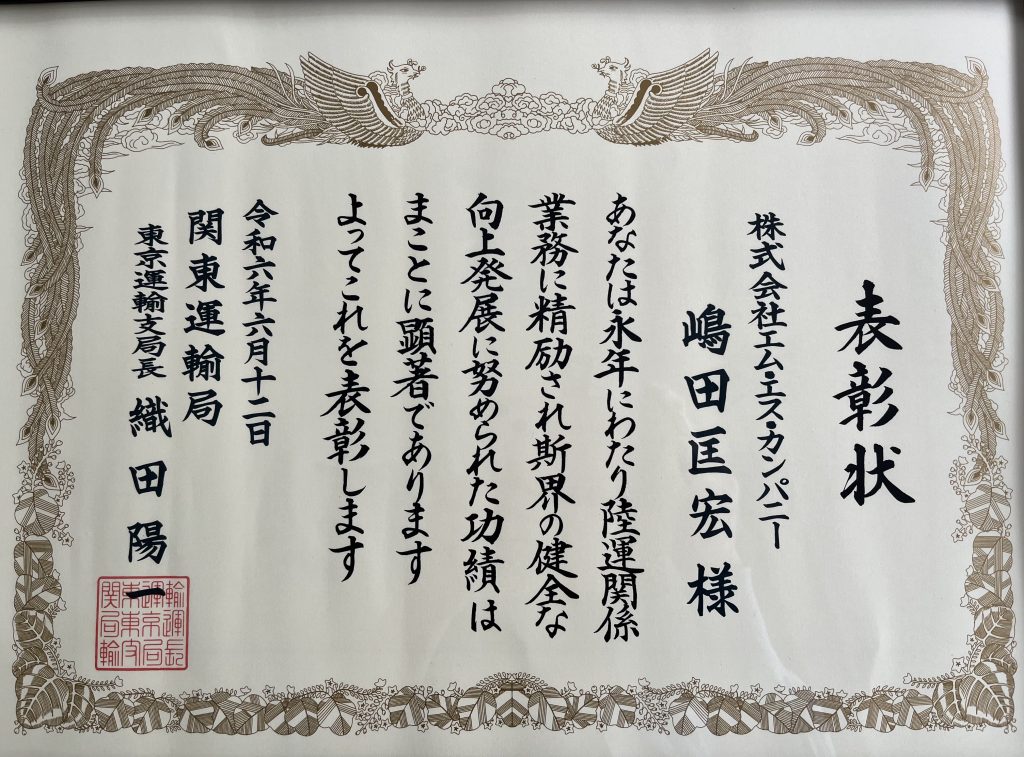 表彰状
株式会社エム・エス・カンパニー
嶋田匡宏様
あなたは永年にわたり陸運関係
業務に精励され斯界の健全な
向上発展に努められた功績は
まことに顕著であります
よってこれを表彰します
令和六年六月十二日
関東運輸局
東京運輸支局長 織田陽一